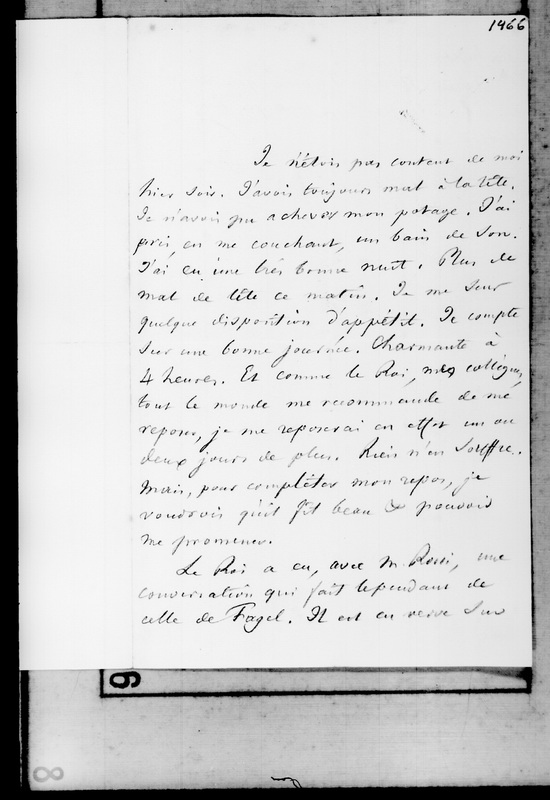 1466
Je n'étois pas content de moi
hier soir. J'avois toujours mal à la tête.
Je n'avois pu achever mon potage. J'ai
pris, en me couchant, un bain de son.
J'ai eu une très bonne nuit. Plus de
mal de tête ce matin. Je me sens
quelque disposition d'appétit. Je compte
sur une bonne journée. Charmante à
4 heures. Et comme le Roi, mes collègues,
tout le monde me recommande de me
reposer, je me reposerai en effet un ou
deux jours de plus. Rien n'en souffre.
Mais, pour compléter mon repos, je
voudrois qu'il fît beau & pouvoir
me promener.
Le Roi a eu, avec M. Rossi, une
conversation qui fait le pendant de
celle de Fagel. Il est en verve sur
9
8